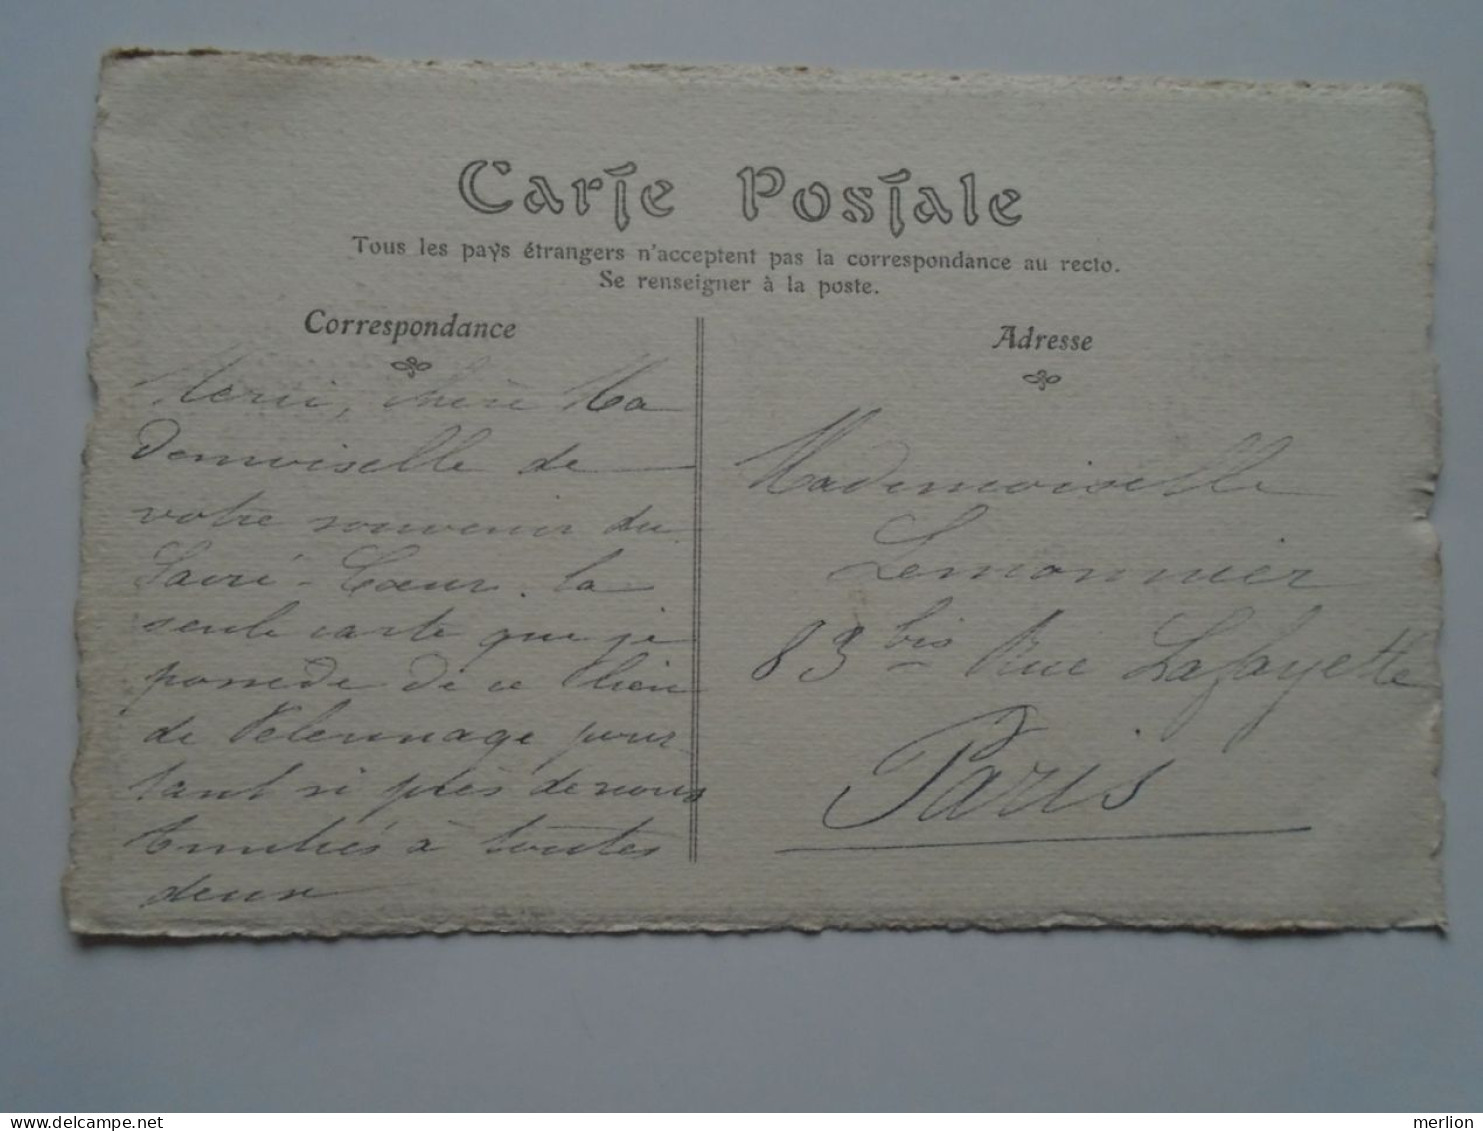 Carte Postale
Tous les pays étrangers n'acceptent pas la correspondance au recto.
Se renseigner à la poste.
Correspondance
Merci, chère Ma
Demoiselle de
votre souvenir du
Sacré-Cœur. la
seule carte que je
possède de ce lieu
de Pélerinage pour
tant si près de nous
Amitiés à toutes
deux
Adresse
Mademoiselle
Lemonnier
83 bis Rue Lafayette
Paris
merlion